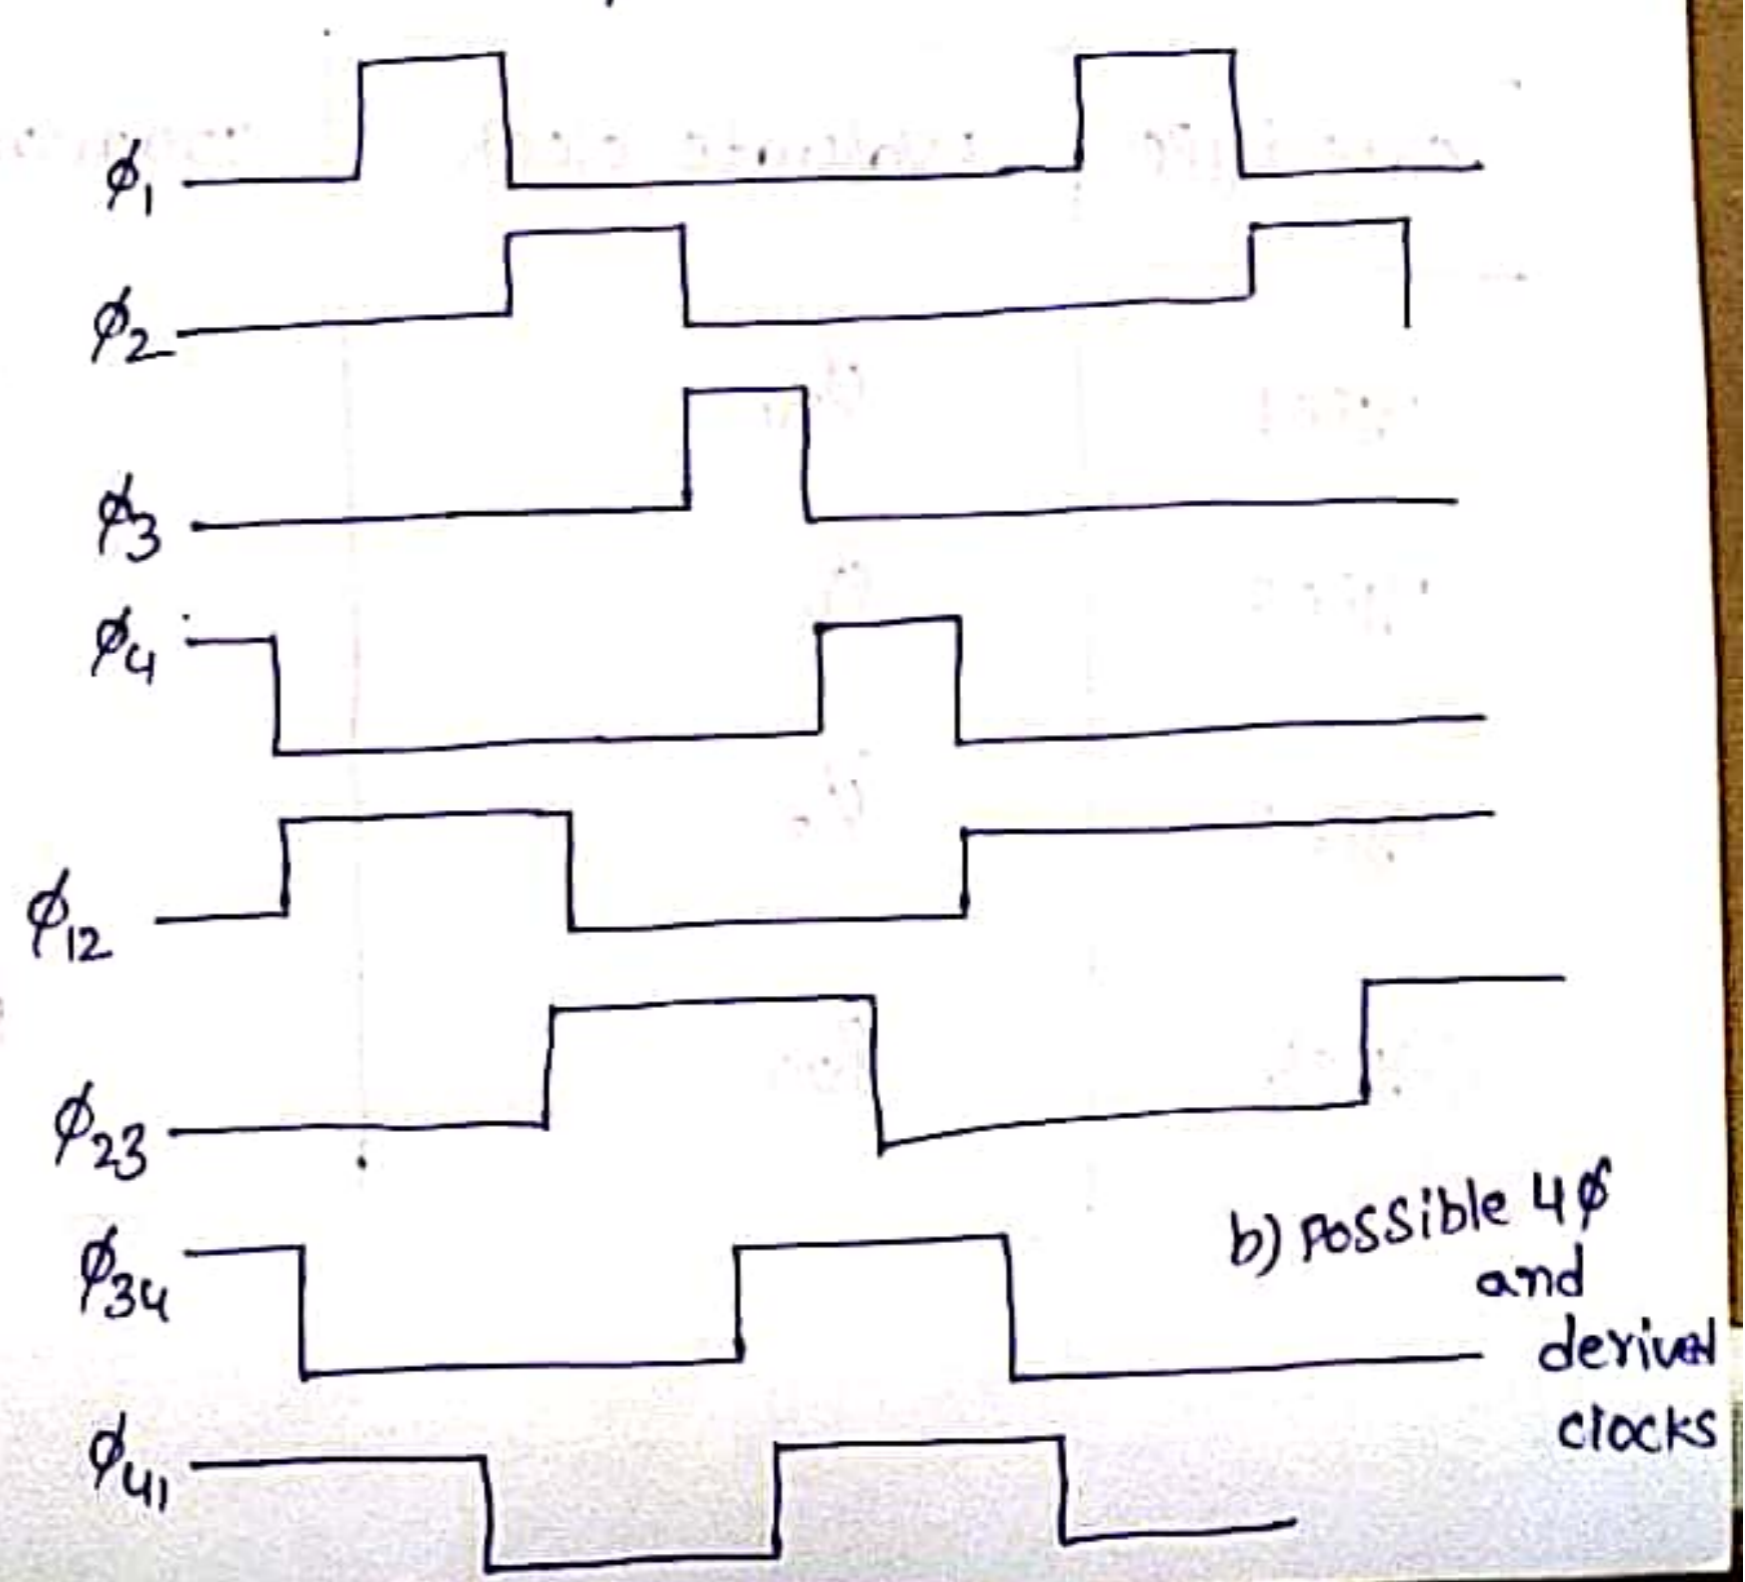 ϕ1
ϕ2
ϕ3
ϕ4
ϕ12
ϕ23
ϕ34
ϕ41
b) Possible 4ϕ
and
derived
clocks